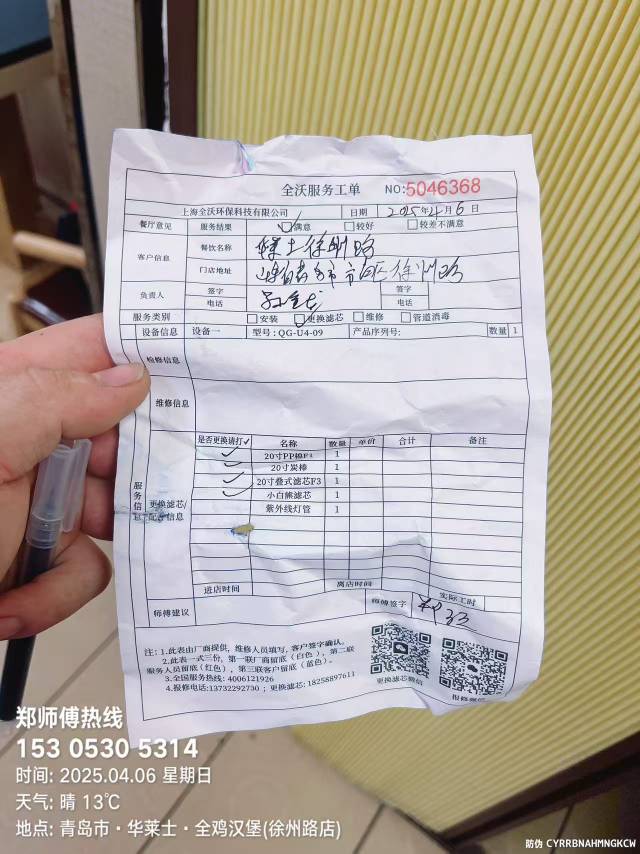 全沃服务工单 NO:5046368
上海全沃环保科技有限公司 日期 2025年4月6日
餐厅意见 服务结果 满意 较好 较差不满意
客户信息 餐饮名称 徐州路
门店地址 市 市 区徐州路
负责人 签字 签字
电话 电话
服务类别 安装 更换滤芯 维修 管道消毒
设备信息 设备一 型号:QG-U4-09 产品序列号: 数量 1
检修信息
维修信息
服务信息
更换滤芯/配件信息
是否更换请打✓ 名称 数量 单价 合计 备注
✓ 20寸PP棉F1 1
✓ 20寸炭棒 1
✓ 20寸叠式滤芯F3 1
✓ 小白熊滤芯 1
紫外线灯管 1
进店时间 离店时间 实际工时
师傅建议 师傅签字
注:1.此表由厂商提供,维修人员填写,客户签字确认。
2.此表一式三份,第一联厂商留底(白色),第二联
服务人员留底(红色),第三联客户留底(蓝色)。
3.全国服务热线:4006121926
4.报修电话:13732292730;更换滤芯:18258897611
更换滤芯微信
郑师傅热线
153 0530 5314
时间: 2025.04.06 星期日
天气: 晴 13℃
地点: 青岛市·华莱士·全鸡汉堡(徐州路店)
防伪 CYRRBNAHMNGKCW